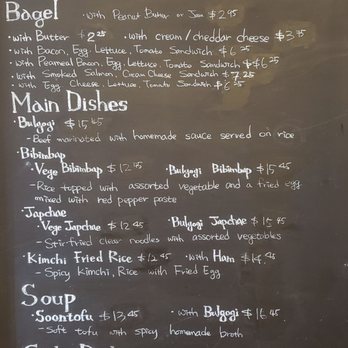 Bagel · with Peanut Butter or Jam $2.95
· with Butter $2.25 · with cream/cheddar cheese $3.95
· with Bacon, Egg, Lettuce, Tomato Sandwich $6.25
· with Peameal Bacon, Egg, Lettuce, Tomato Sandwich $6.25
· with Smoked Salmon, Cream Cheese Sandwich $7.25
· with Egg, Cheese, Lettuce, Tomato Sandwich $6.25
Main Dishes
· Bulgogi $15.45
- Beef marinated with homemade sauce served on rice
· Bibimbap
· Vege Bibimbap $12.95 · Bulgogi Bibimbap $15.45
- Rice topped with assorted vegetable and a fried egg
mixed with red pepper paste
· Japchae
· Vege Japchae $12.45 · Bulgogi Japchae $15.45
- Stir-fried clear noodles with assorted vegetables
· Kimchi Fried Rice $12.95 · with Ham $14.45
- Spicy Kimchi, Rice with Fried Egg
Soup
· Soontofu $13.45 · with Bulgogi $16.45
- Soft tofu with spicy homemade broth